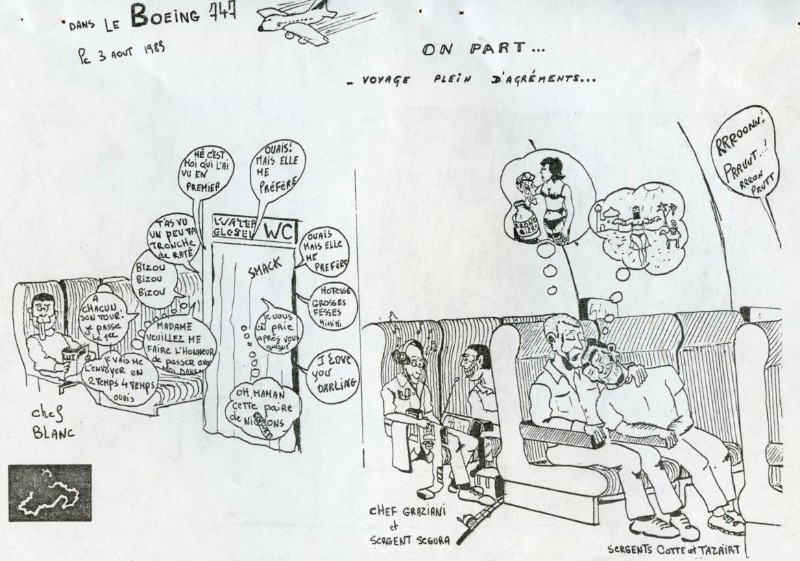 DANS LE BOEING 747
Le 3 AOUT 1983
ON PART...
- VOYAGE PLEIN D'AGRÉMENTS...
HÉ C'EST
MOI QUI L'AI
VU EN
PREMIER
OUAIS!
MAIS ELLE
ME
PRÉFÈRE
T'AS VU
UN PEU TA
TRONCHE
DE RATÉ
BIZOU
BIZOU
BIZOU
A
CHACUN
SON TOUR!
je passe
le 1er
MADAME
VEUILLEZ ME
FAIRE L'HONNEUR
de PASSER
JE VAIS ME
L'ENVOYER EN
2 TEMPS 4 TEMPS
OUAIS
WATER
CLOSET
WC
SMACK
je vous
en prie
après vous
OH, MAMAN
cette paire
de
OUAIS
MAIS ELLE
ME
PREFÈRE
HOTESSE
GROSSES
FESSES
HIHIHI
I LOVE
YOU
DARLING
chef
BLANC
RRROONN!
PRRUUT...!
RRRON
PRUTT
CHEF GRAZIANI
et
SERGENT SEGURA
SERGENTS COTTE et TAZAIRT